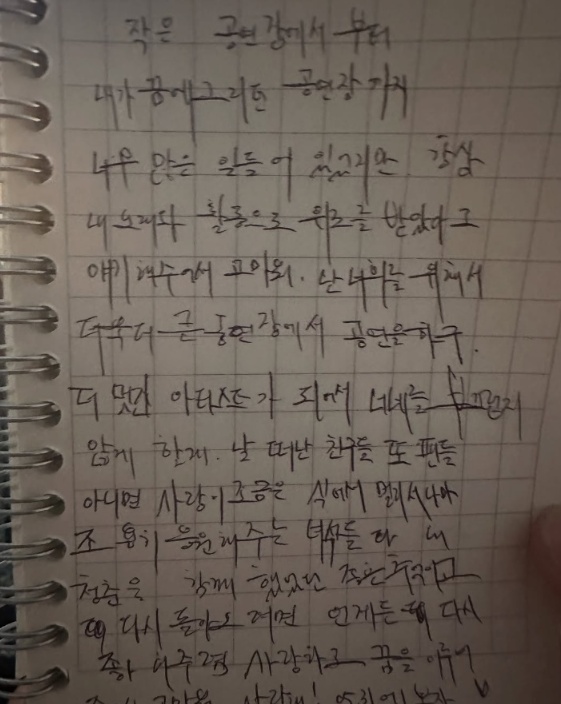 작은 공연장에서 부터
내가 꿈에 그리던 공연장 까지
너무 많은 일들이 있었지만 항상
내 노래와 활동으로 위로를 받았다고
얘기해줘서 고마워. 난 너희를 위해서
더욱더 큰 공연장에서 공연을 하구.
더 멋진 아티스트가 되어서 너네를 부끄럽지
않게 할게. 날 떠난 친구들 또 팬들
아니면 사랑이 조금은 식어서 멀리서나마
조용히 응원해주는 녀석들 다 내
청춘을 함께 했었던 좋은 추억이고
다시 돌아오려면 언제든 다시
좋아해주고 사랑하고 꿈을 이루어
사랑해!